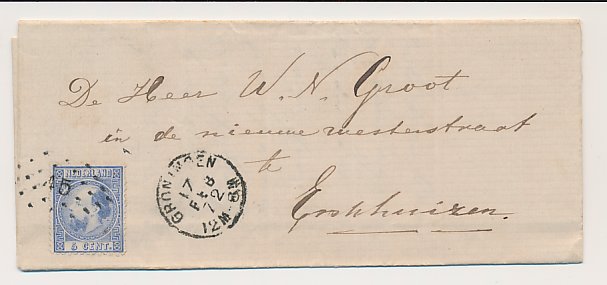 De Heer W. N. Groot
in de nieuwe westerstraat
te
Enkhuizen.
NEDERLAND
5 CENT.
GRONINGEN
17
FEB
72